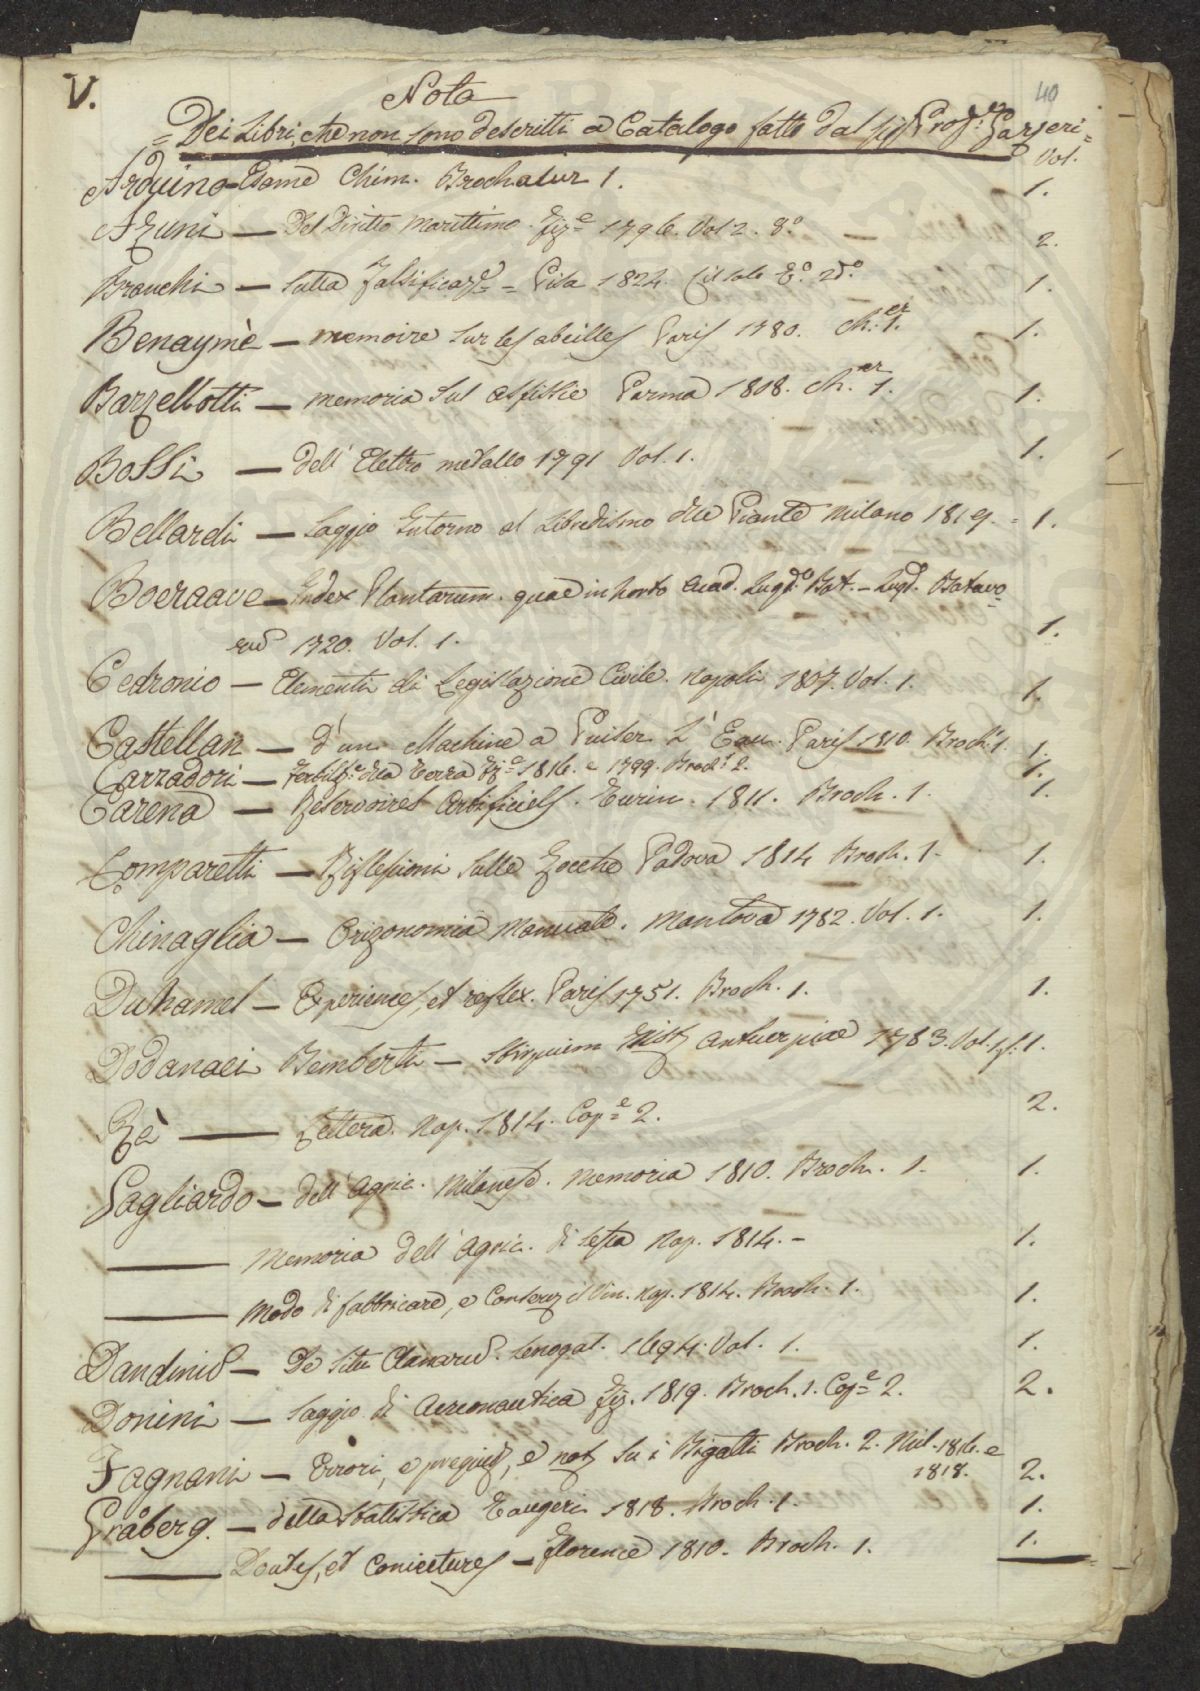 V.
40
Nota
= Dei Libri, che non sono descritti a Catalogo fatto dal Sigr. Profr. Gazzeri =
Vol.
Arduino = Esame Chim. Brochatur 1. 1.
Azuni — Del Diritto Marittimo. Fize 1796. Vol 2. 8º 2.
Branchi — Sulla Falsificaze = Pisa 1824. 1.
Benaymè — memoire sur les abeilles Paris 1780. ch.er 1. 1.
Barzellotti — memoria sul Asfissie Parma 1808. ch.er 1. 1.
Bossi — dell' Elettro metallo 1791 Vol. 1. 1.
Bellardi — Saggio Intorno al Libredismo delle Piante Milano 1819. = 1.
Boeraave — Index Plantarum quae in horto Acad. Lugdº Bat. – Lugd. Batavo=
rum 1720. Vol. 1. 1.
Cedronio — Elementi di Legislazione Civile. Napoli 1807. Vol. 1. 1.
Castellan — d'une Machine a Puiser L'Eau. Paris 1810. Broch. 1. 1.
Carradori — Fertilie della Terra Fize 1816. e 1799. Broch. 2.
Carena — Reservoires Artificiels. Turin. 1811. Broch. 1. 1.
Comparetti — Riflessioni sulle Zocche Padova 1814 Broch. 1. 1.
Chinaglia — Orizonomia Manuale. Mantova 1782. Vol. 1. 1.
Duhamel — Experiences, et reflex. Paris 1751. Broch. 1. 1.
Dodanaei Remberti — Stirpium Hist. Antuerpiae 1783. Vol. 1.
Rè — Lettera. Nap. 1814. Cope 2. 2.
Gagliardo — dell' Agric. Milanese. Memoria 1810. Broch. 1. 1.
— Memoria dell' Agric. di Sessa Nap. 1814. – 1.
— Modo di fabbricare, e Conserz il Vin. Nap. 1814. Broch. 1. 1.
Dandinus — De Situ Clanarum. Senogal. 1694. Vol. 1. 1.
Donini — Saggio di Aereonautica Fiz. 1819. Broch. 1. Cope 2. 2.
Fagnani — Errori, e pregiud, e not su i Bigatti Broch. 2. Mil. 1816. e
1818. 2.
Gråberg. — della Statistica Tangeri 1818. Broch. 1. 1.
— Doutes, et Coniectures — Florence 1810. Broch. 1. 1.